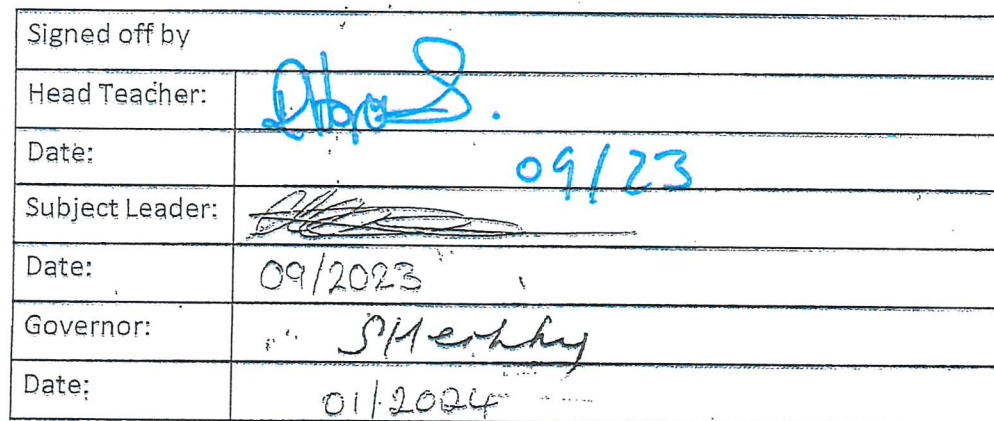 Signed off by
Head Teacher:
Date: 09/23
Subject Leader:
Date: 09/2023
Governor:
Date: 01/2024